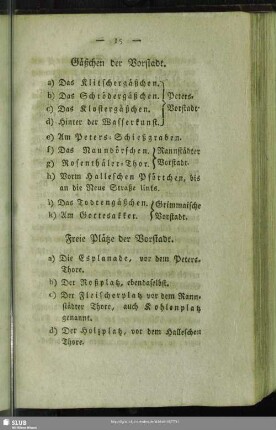 — 15 —
Gäßchen der Vorstadt.
a) Das Klitschergäßchen.
b) Das Schrödergäßchen. Peters-
c) Das Klostergäßchen. Vorstadt.
d) Hinter der Wasserkunst.
e) Am Peters-Schießgraben.
f) Das Naundörfchen. Rannstädter
g) Rosenthäler-Thor. Vorstadt.
h) Vorm Halleschen Pförtchen, bis
an die Neue Straße links.
i) Das Todtengäßchen. Grimmaische
k) Am Gottesakker. Vorstadt.
Freie Plätze der Vorstadt.
a) Die Esplanade, vor dem Peters-
Thore.
b) Der Roßplatz, ebendaselbst.
c) Der Fleischerplatz vor dem Rann-
städter Thore, auch Kohlenplatz
genannt.
d) Der Holzplatz, vor dem Halleschen
Thore.
SLUB